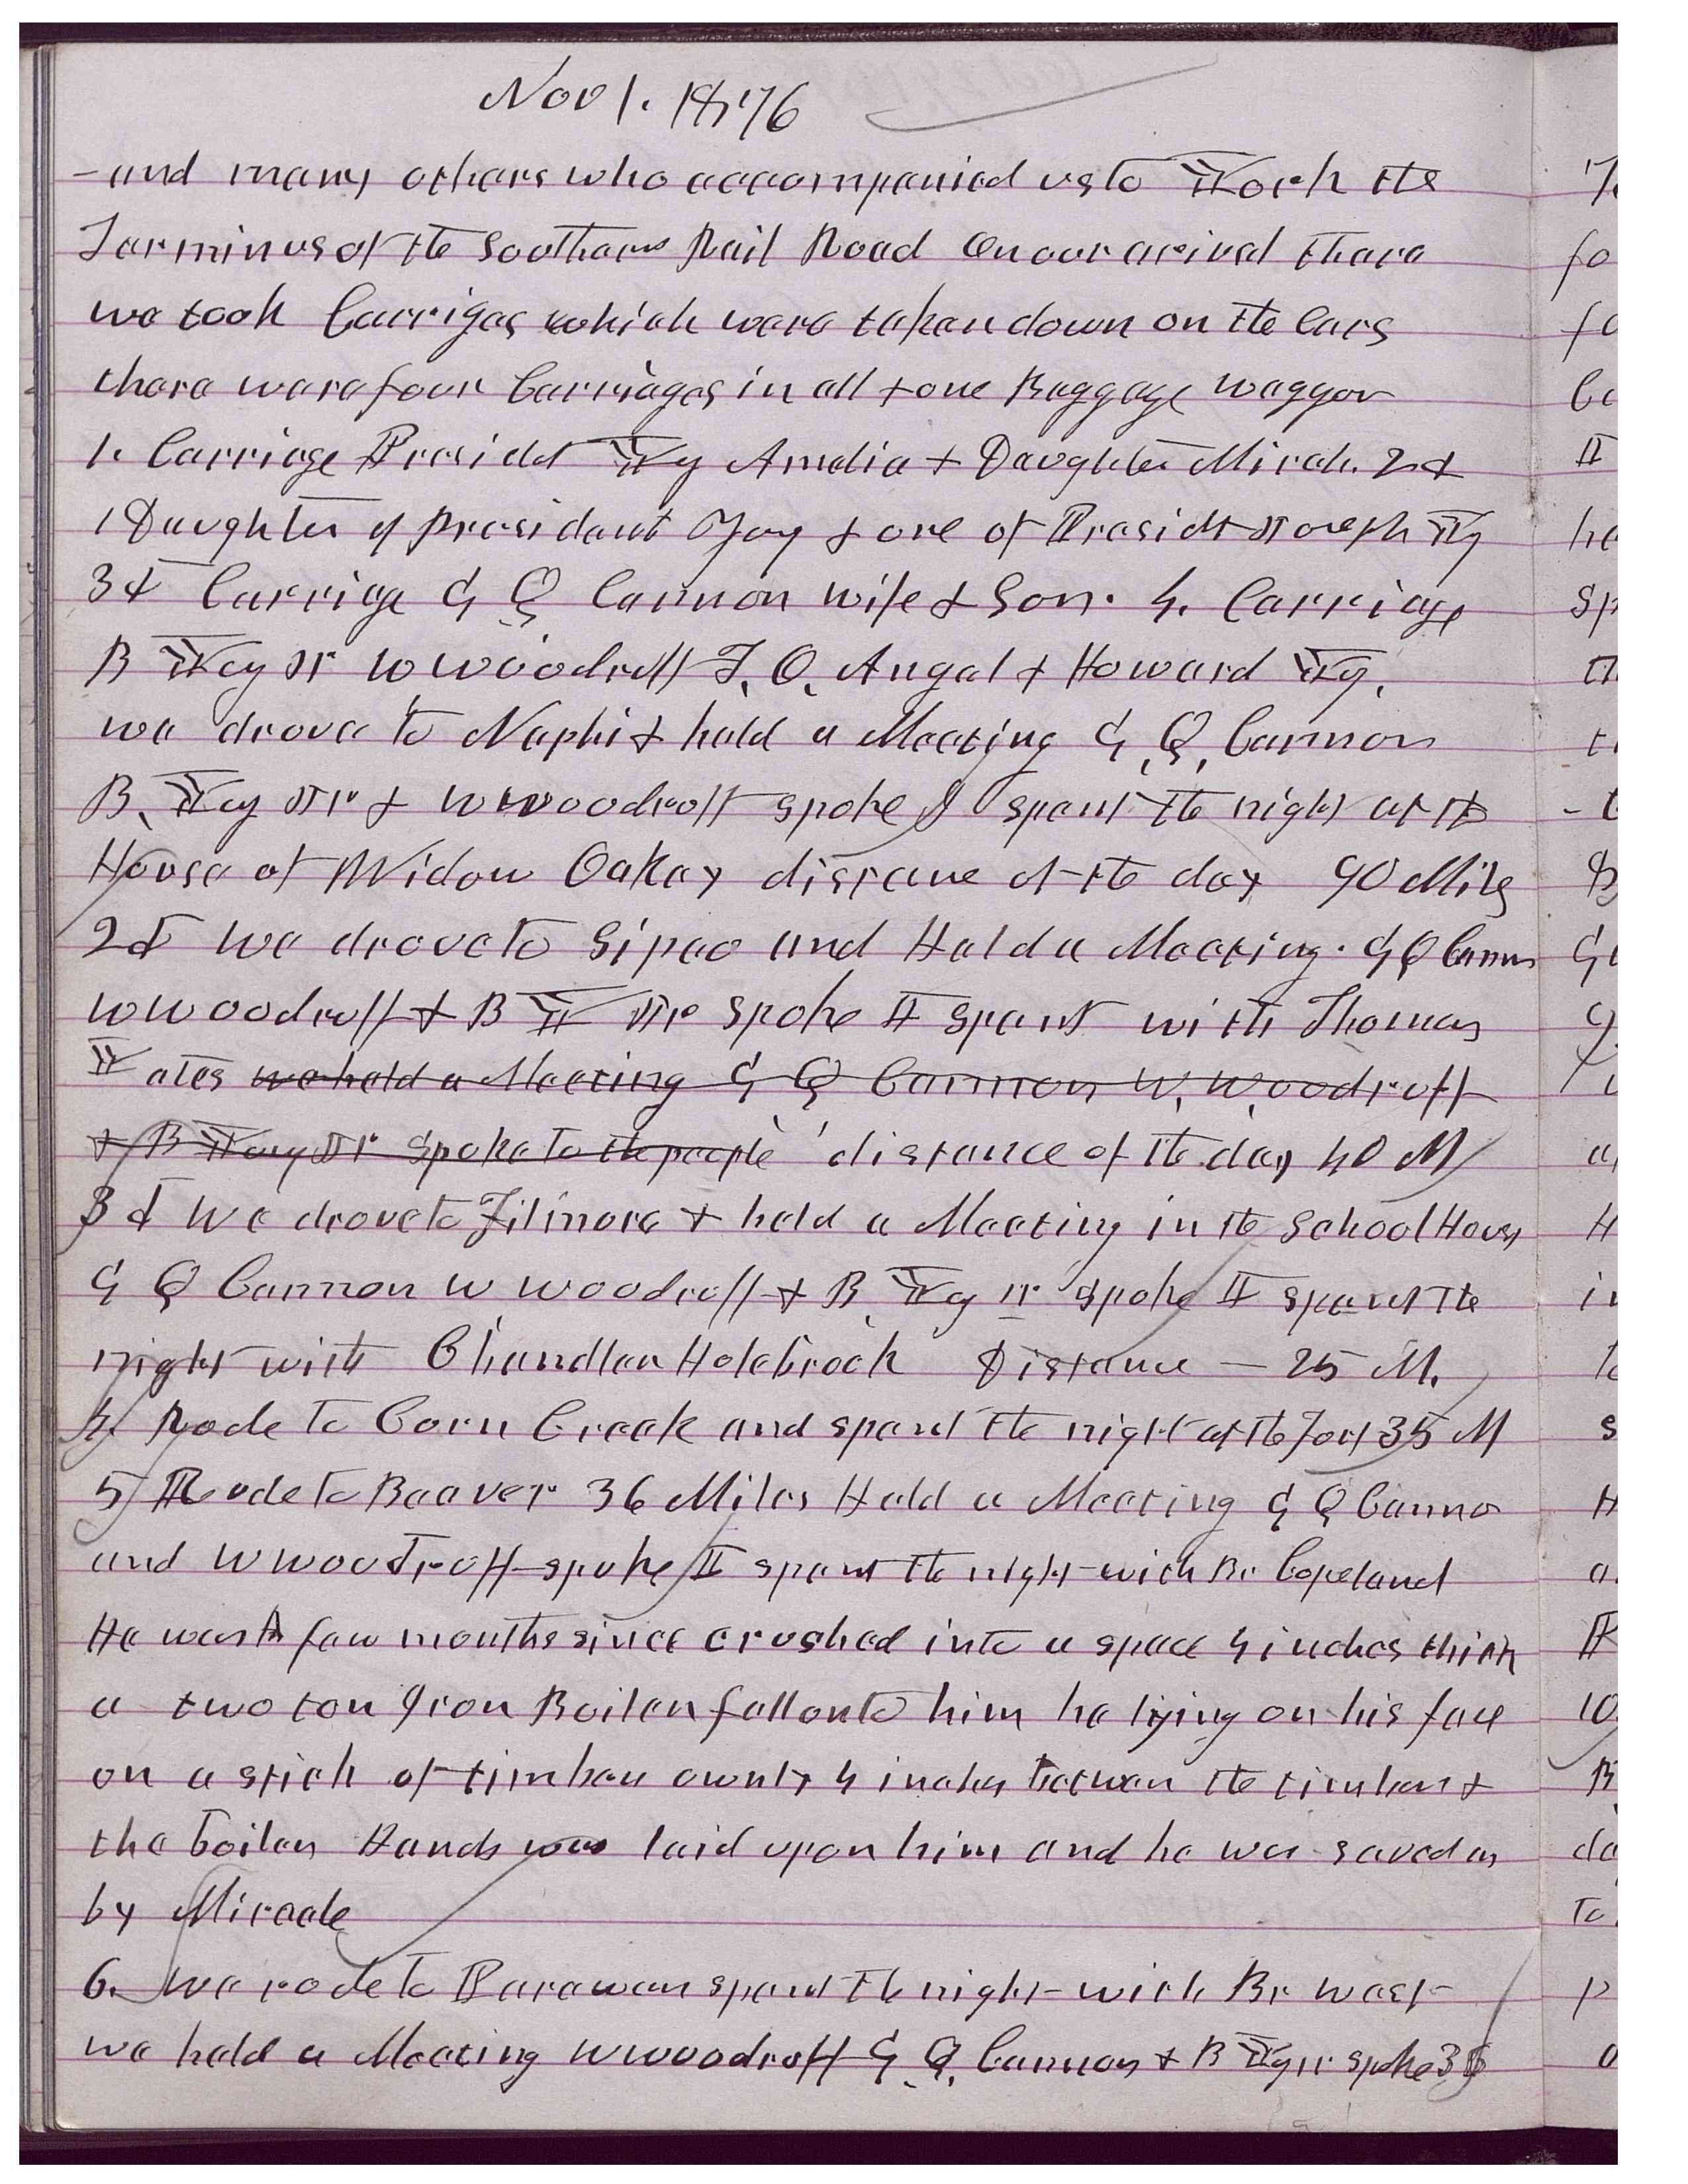 Nov 1. 1876
-and many others who accompanied us to York the
Terminus of the Southern Rail Road On our arival there
we took Carrigas which were taken down on the Cars
there were four Carriages in all + one Baggage waggon
1. Carriage Presidet Yg Amelia + Daughter Mirah. 2d
1 Daughter of president Yg + one of Presidt Joseph Yg
3d Carriage G Q Cannon wife & Son. 4. Carriage
B Yg Jr W Woodruff T. O. Angel + Howard Yg.
we drove to Nephi & held a Meeting G, Q, Cannon
B. Yg Jr & W Woodruff spoke I spent the night at the
House of Widow Oakey distance of the day 90 Mils
2d we drove to Sipeo and Held a Meeting. G Q Cannon
W Woodruff + B Y Jr spoke I spent with Thomas
Yates we held a Meeting G Q Cannon W, Woodruff
+ B Young Jr spoke to the people distance of the day 40 M
3d We drove to Filmore + held a Meeting in the School House
G Q Cannon W Woodruff + B Yg Jr spoke I spent the
night with Chandler Holebrook Distance — 25 M.
4. Rode to Corn Creek and spent the night at the Fort 35 M
5 Rode to Beaver 36 Miles Held a Meeting G Q Canno
and W Woodruff spoke I spent the night with Br Copeland
He was A few months since crushed into a space 4 inches thick
a two ton Iron Boiler fell onto him he lying on his face
on a stick of timber ownly 4 inches between the timber &
the boiler Hands was laid upon him and he was saved as
by Miracle
6. we rode to Parawan spent the night with Br West
we held a Meeting W Woodruff G Q. Cannon + B Yg Jr spoke 35